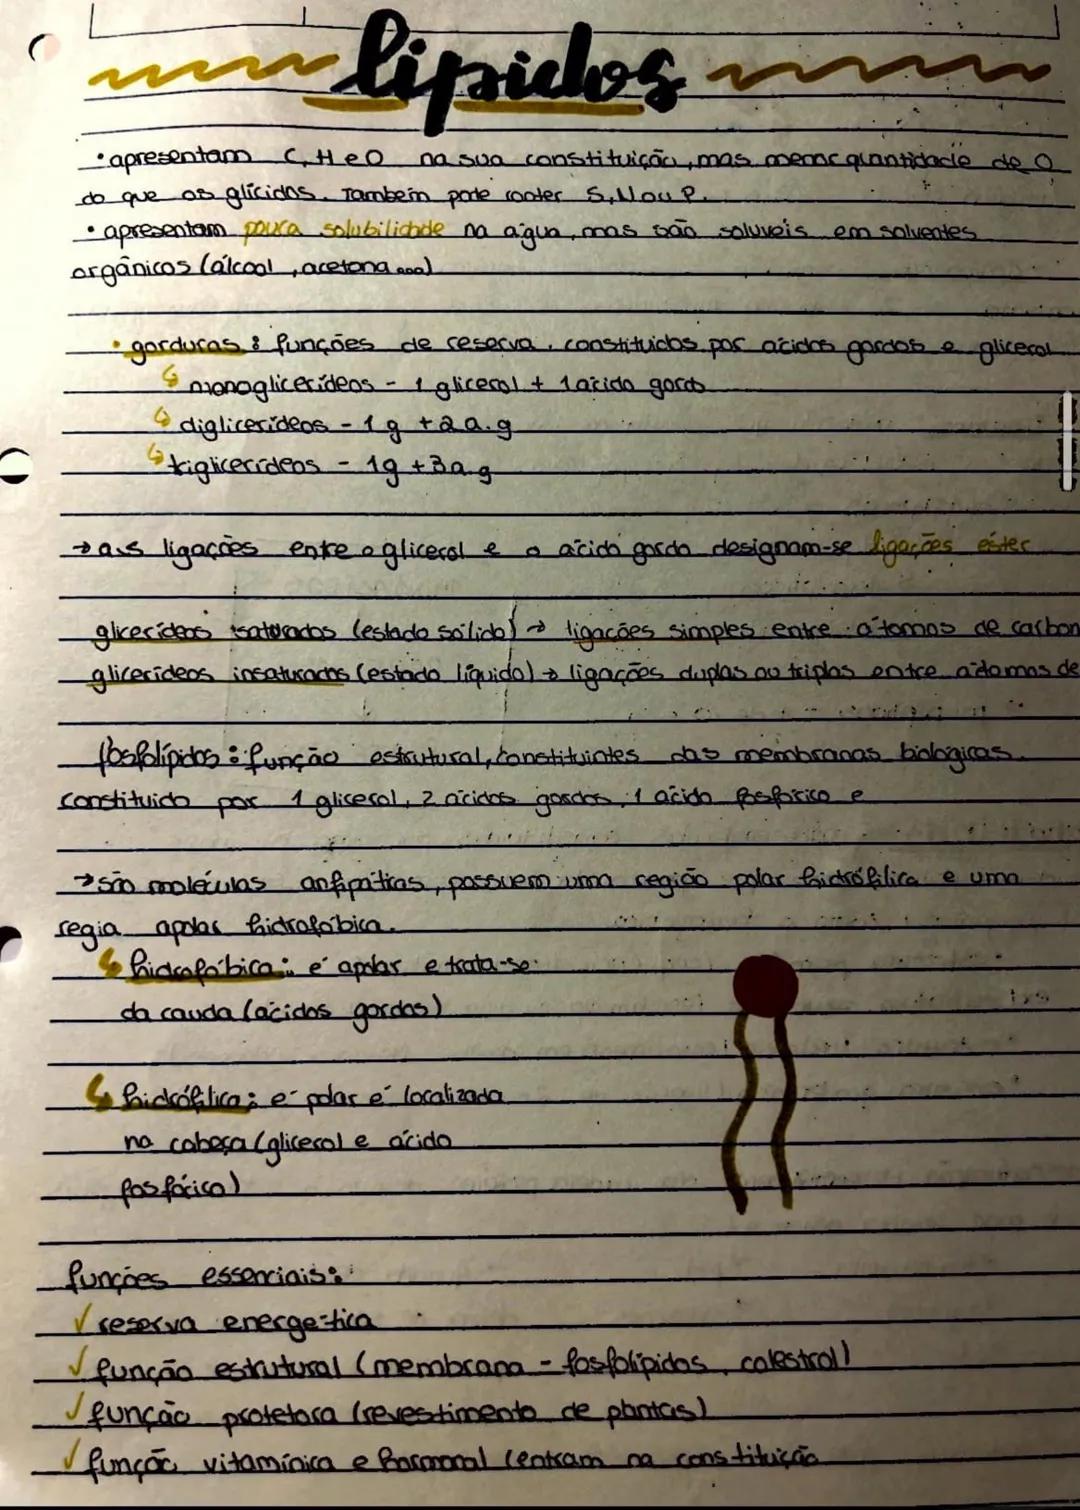 lipidos
• apresentam C, H e O na sua constituição, mas menor quantidade de O
do que os glícidos. Também pode conter S, N ou P.
• apresentam pouca solubilidade na água, mas são soluvéis em solventes
orgânicos (álcool, acetona ...)
• gorduras: funções de reserva. constituidos por ácidos gordos e glicerol
↳ monoglicerídeos - 1 glicerol + 1 ácido gordo
↳ diglicerídeos - 1g + 2a.g
↳ triglicerídeos - 1g + 3a.g
→ as ligações entre o glicerol e o ácido gordo designam-se ligações éster
glicerídeos saturados (estado sólido) → ligações simples entre átomos de carbon
glicerídeos insaturados (estado líquido) → ligações duplas ou triplas entre átomos de
fosfolípidos: função estrutural, constituintes das membranas biológicas.
constituido por 1 glicerol, 2 ácidos gordos, 1 ácido fosfórico e
→ são moléculas anfipáticas, possuem uma região polar hidrófilica e uma
regia apolar hidrofóbica.
↳ hidrofóbica: é apolar e trata-se
da cauda (ácidos gordos)
↳ hidrófilica: é polar é localizada
na cabeça (glicerol e ácido
fosfórico)
funções essenciais:
✓ reserva energética
✓ função estrutural (membrana - fosfolípidos, colestrol)
✓ função protetora (revestimento de plantas)
✓ função vitamínica e hormonal (entram na constituição